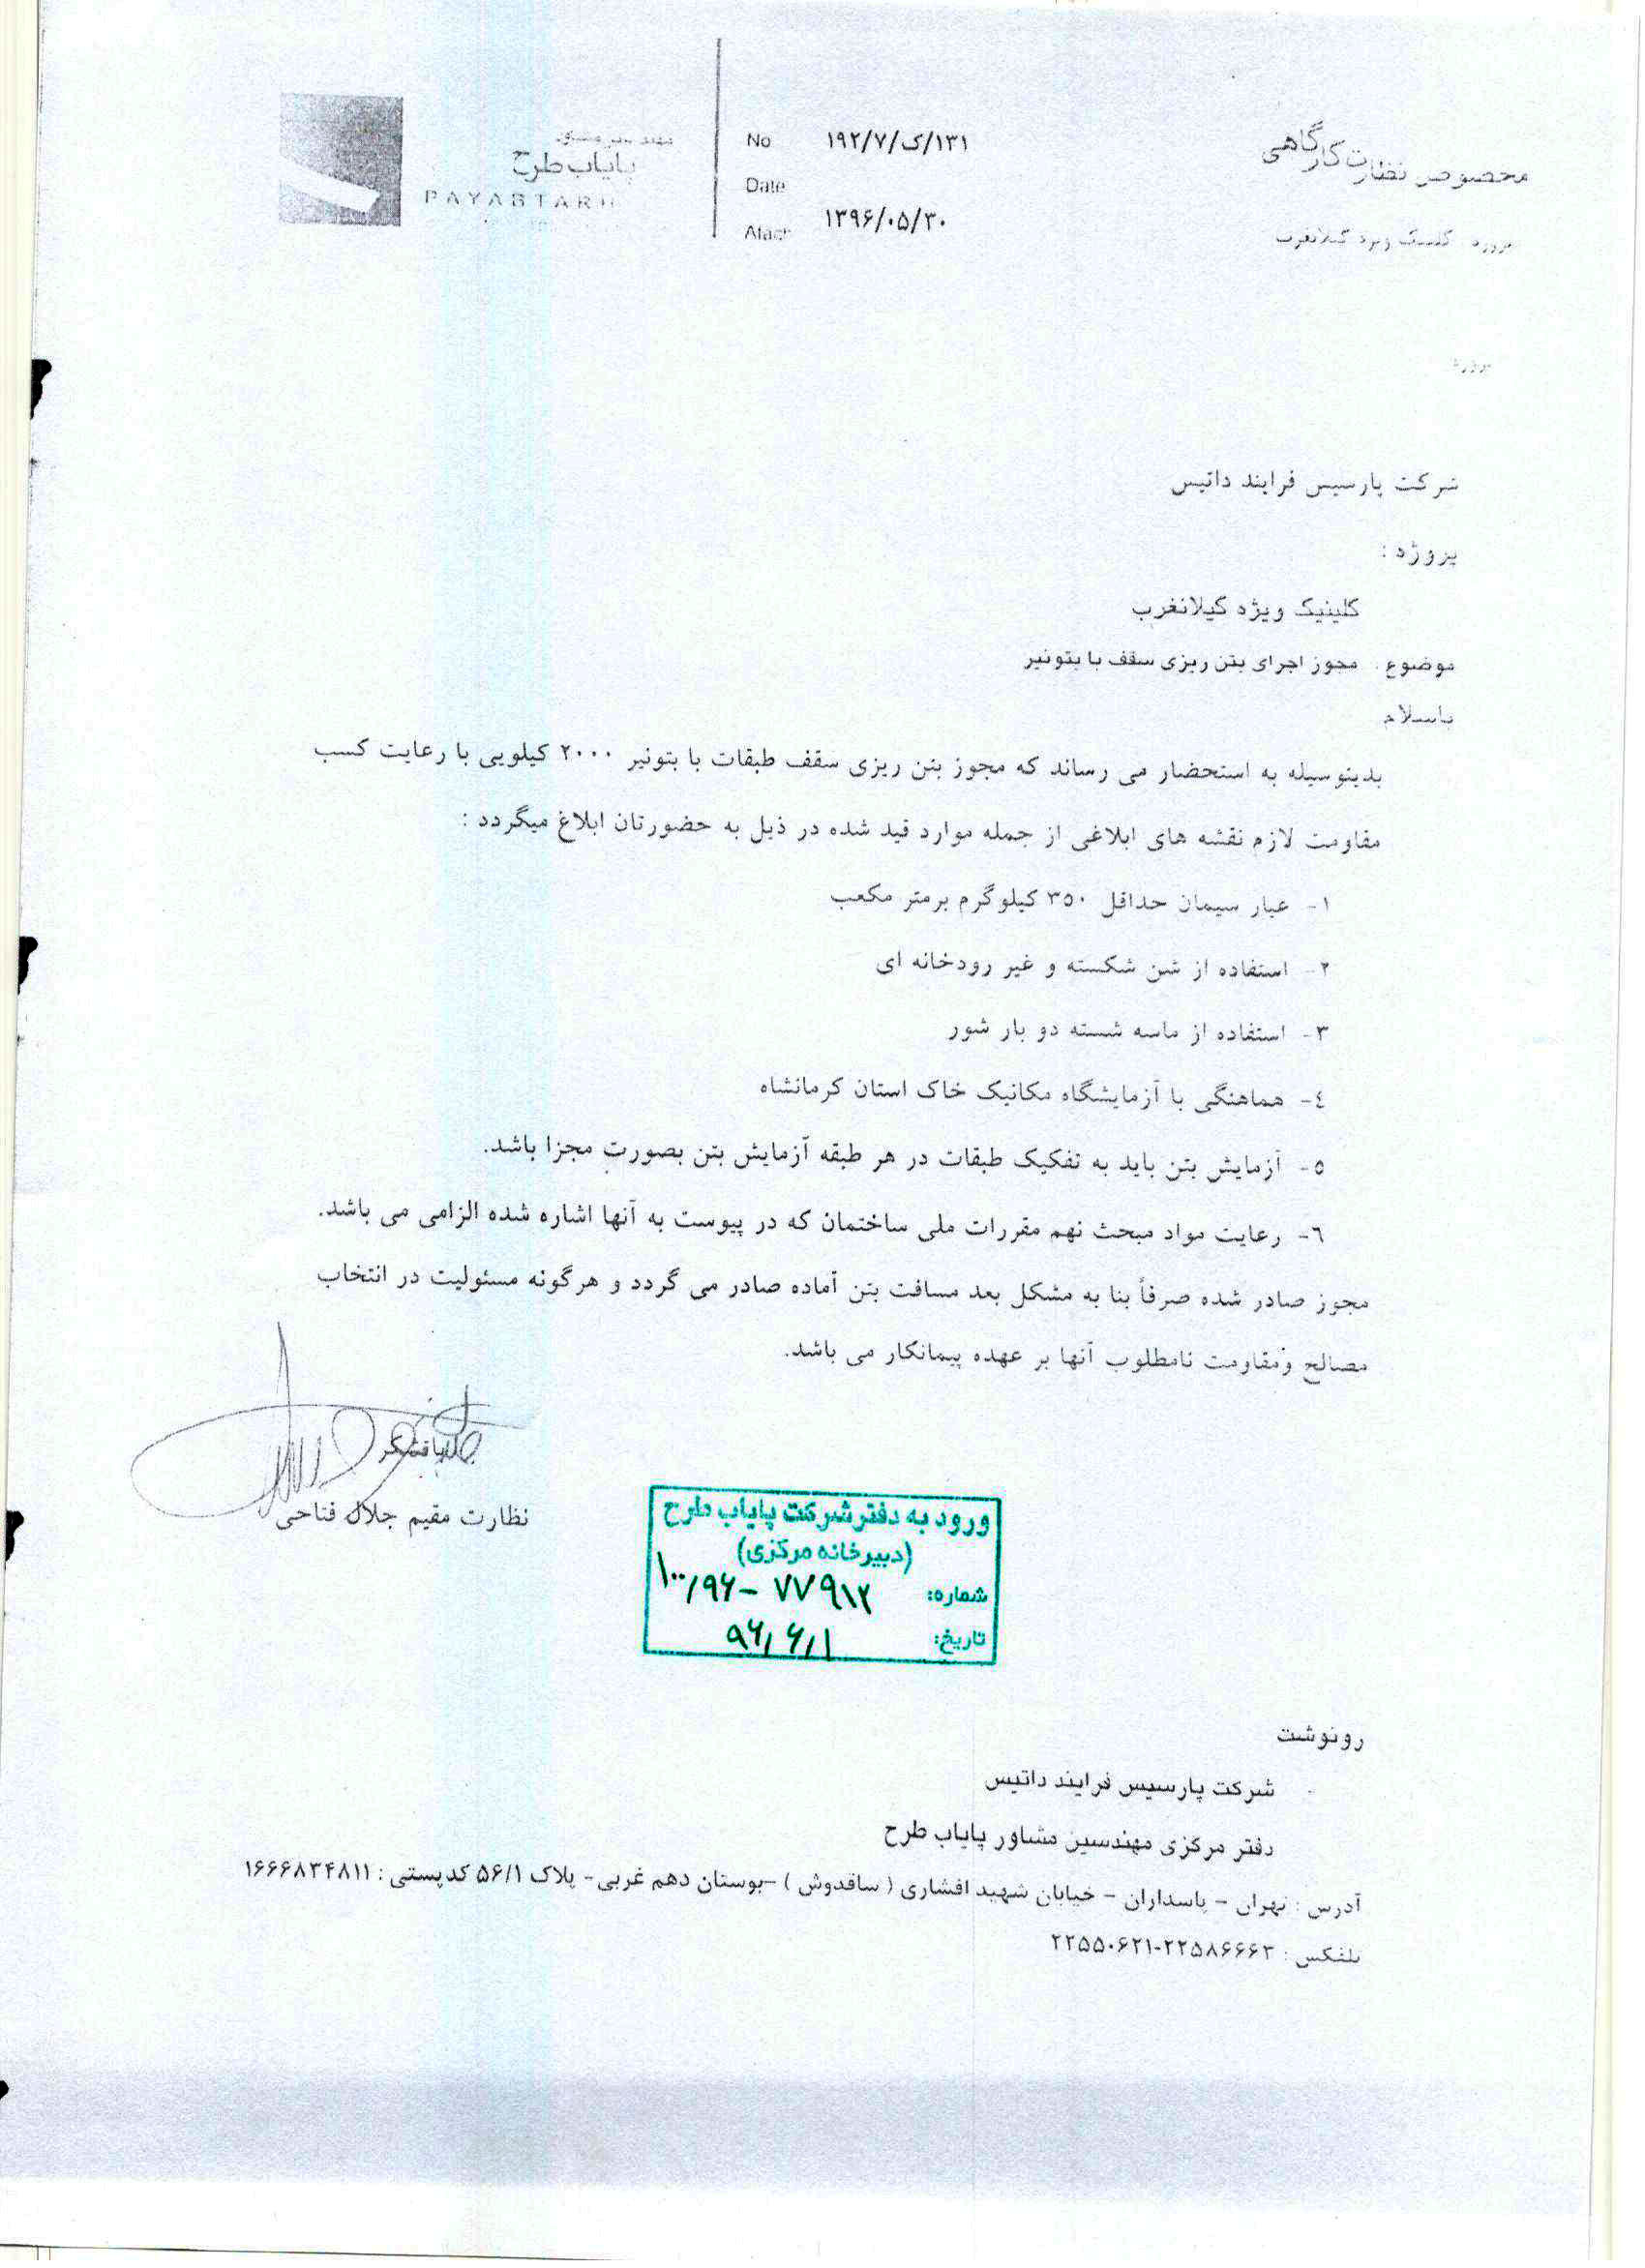 مخصوص نظارت کارگاهی
پروژه کلینیک ویژه گیلانغرب
No ۱۳۱/ک/۱۹۲/۷
Date
۱۳۹۶/۰۵/۳۰
Atach
پایاب طرح
PAYABTARH
پروژه
شرکت پارسیس فرایند داتیس
پروژه :
کلینیک ویژه گیلانغرب
موضوع : مجوز اجرای بتن ریزی سقف با بتونیر
باسلام
بدینوسیله به استحضار می رساند که مجوز بتن ریزی سقف طبقات با بتونیر ۲۰۰۰ کیلویی با رعایت کسب
مقاومت لازم نقشه های ابلاغی از جمله موارد قید شده در ذیل به حضورتان ابلاغ میگردد :
۱- عیار سیمان حداقل ۳۵۰ کیلوگرم برمتر مکعب
۲- استفاده از شن شکسته و غیر رودخانه ای
۳- استفاده از ماسه شسته دو بار شور
٤- هماهنگی با آزمایشگاه مکانیک خاک استان کرمانشاه
٥- آزمایش بتن باید به تفکیک طبقات در هر طبقه آزمایش بتن بصورت مجزا باشد.
٦- رعایت مواد مبحث نهم مقررات ملی ساختمان که در پیوست به آنها اشاره شده الزامی می باشد.
مجوز صادر شده صرفاً بنا به مشکل بعد مسافت بتن آماده صادر می گردد و هرگونه مسئولیت در انتخاب
مصالح ومقاومت نامطلوب آنها بر عهده پیمانکار می باشد.
نظارت مقیم جلال فتاحی
ورود به دفتر شرکت پایاب طرح
(دبیرخانه مرکزی)
شماره: ۱۰۰/۹۶-۷۷۹۱۲
تاریخ: ۹۶/۶/۱
رونوشت
شرکت پارسیس فرایند داتیس
دفتر مرکزی مهندسین مشاور پایاب طرح
آدرس : تهران - پاسداران - خیابان شهید افشاری ( ساقدوش ) -بوستان دهم غربی- پلاک ۵۶/۱ کدپستی : ۱۶۶۶۸۳۴۸۱۱
تلفکس : ۲۲۵۸۶۶۶۳-۲۲۵۵۰۶۲۱